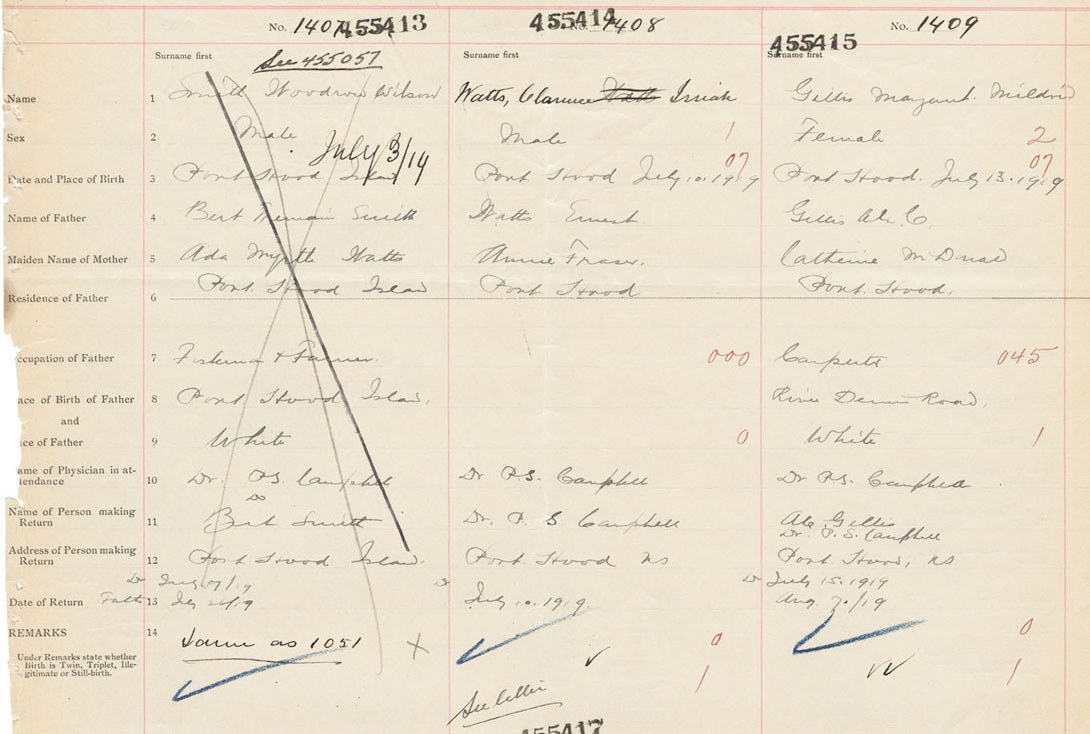 No. 1407 455413 455414 No. 1408 No. 1409
455415
Surname first See 455057 Surname first Surname first
Name 1 Smith Woodrow Wilson Watts, Clarence Isaiah Gillis Margaret Mildrid
Sex 2 Male Male 1 Female 2
July 3/19 07 07
Date and Place of Birth 3 Port Hood Island Port Hood July 10. 1919 Port Hood. July 13. 1919
Name of Father 4 Bert Smith Watts Ernest Gillis Alex C.
Maiden Name of Mother 5 Ada Myrtle Watts Annie Fraser. Catherine
Residence of Father 6 Port Hood Island Port Hood Port. Hood.
ccupation of Father 7 Fisherman & Farmer. 000 Carpenter 045
ace of Birth of Father 8 Port Hood Island. River Dennis Road.
and
ce of Father 9 White 0 White 1
ame of Physician in at-
tendance 10 Dr. P.S. Campbell Dr P.S. Campbell Dr P.S. Campbell
Do
Name of Person making
Return 11 Bert Smith Dr. P. S. Campbell Alex Gillis
Dr. P. S. Campbell
Address of Person making
Return 12 Port Hood Island. Port Hood NS Port Hood, NS
Dr July 7/19 Dr Dr July 15. 1919
Date of Return Fath 13 July 26/19 July 10. 1919. Aug. 7/19
REMARKS 14 Same as 1051 0 0
Under Remarks state whether
Birth is Twin, Triplet, Ille-
gitimate or Still-birth. 1 1
455417